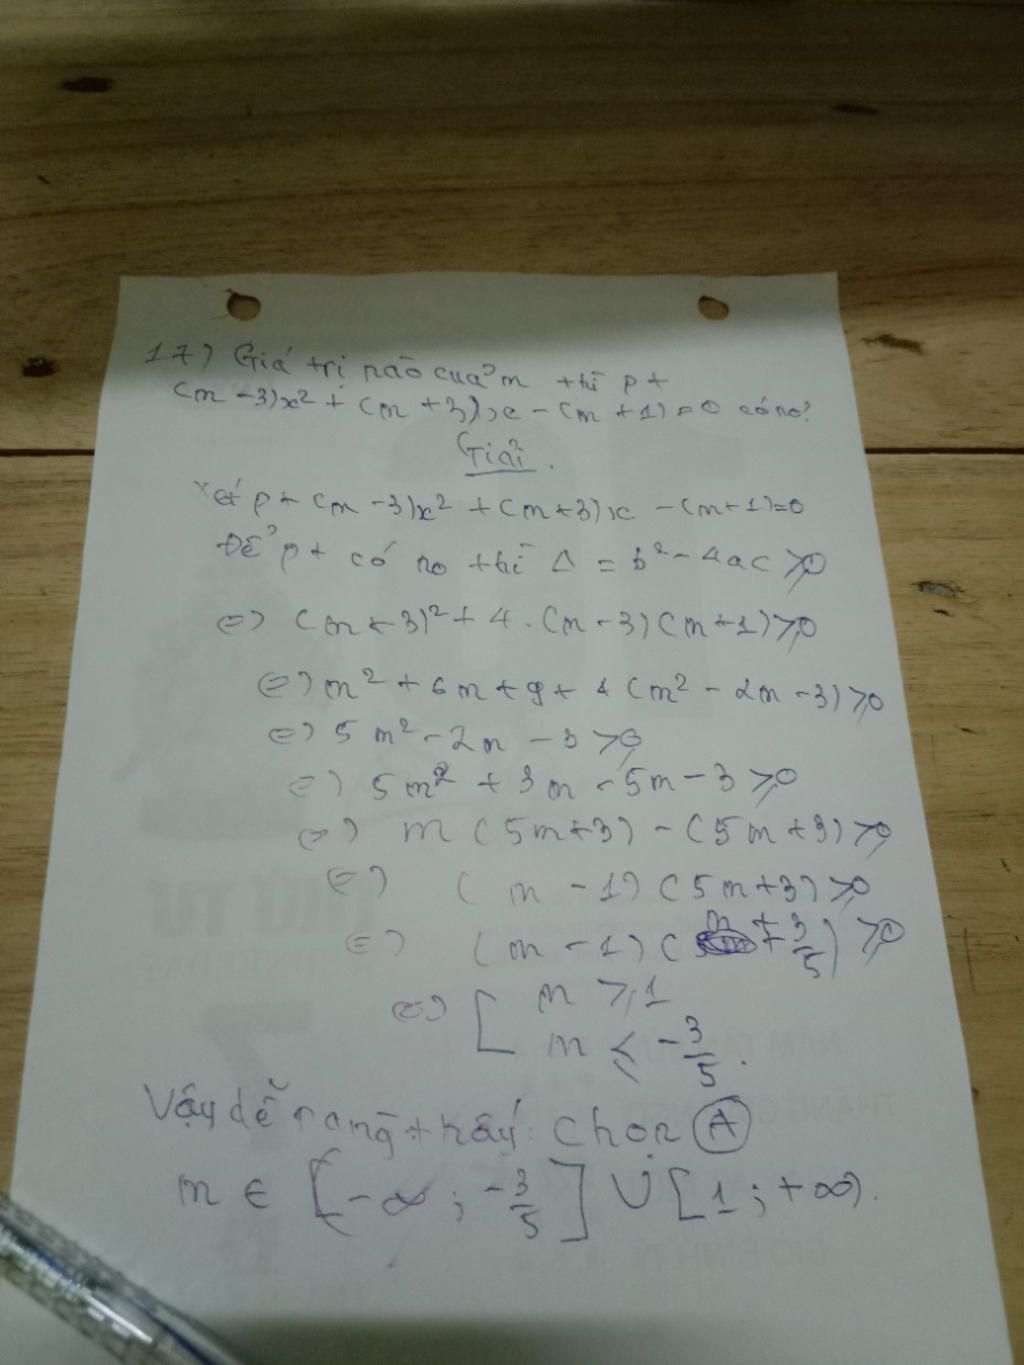 17) Giá trị nào của m thì pt
(m - 3)x² + (m + 3)x - (m + 1) = 0 có no?
Giải.
Xét pt (m - 3)x² + (m + 3)x - (m + 1) = 0
Để pt có no thì Δ = b² - 4ac ⩾ 0
⇔ (m + 3)² + 4 . (m - 3)(m + 1) ⩾ 0
⇔ m² + 6m + 9 + 4(m² - 2m - 3) ⩾ 0
⇔ 5m² - 2m - 3 ⩾ 0
⇔ 5m² + 3m - 5m - 3 ⩾ 0
⇔ m(5m + 3) - (5m + 3) ⩾ 0
⇔ (m - 1)(5m + 3) ⩾ 0
⇔ (m - 1)(m + 3/5) ⩾ 0
⇔ [ m ⩾ 1
m ⩽ -3/5.
Vậy dễ ràng thấy: chọn A
m ∈ [-∞; -3/5] ∪ [1; +∞).